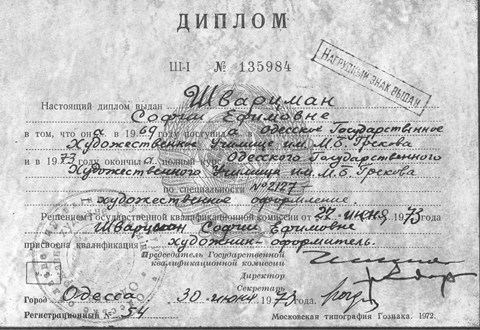 ДИПЛОМ
Ш-I № 135984
НАГРУДНЫЙ ЗНАК ВЫДАН
Настоящий диплом выдан Шварцман
Софии Ефимовне
в том, что она в 1969 году поступила в Одесское Государственное
Художественное Училище им. М.Б. Грекова
и в 1973 году окончила полный курс Одесского Государственного
Художественного Училища им. М.Б. Грекова
по специальности № 2127 -
- художественное оформление.
Решением Государственной квалификационной комиссии от 27 июня 1973 года
Шварцман Софии Ефимовне
присвоена квалификация - художник-оформитель.
Председатель Государственной
квалификационной комиссии
Директор
Секретарь
Город Одесса, 30 июня 1973 г.
Регистрационный № 54
Московская типография Гознака. 1972.